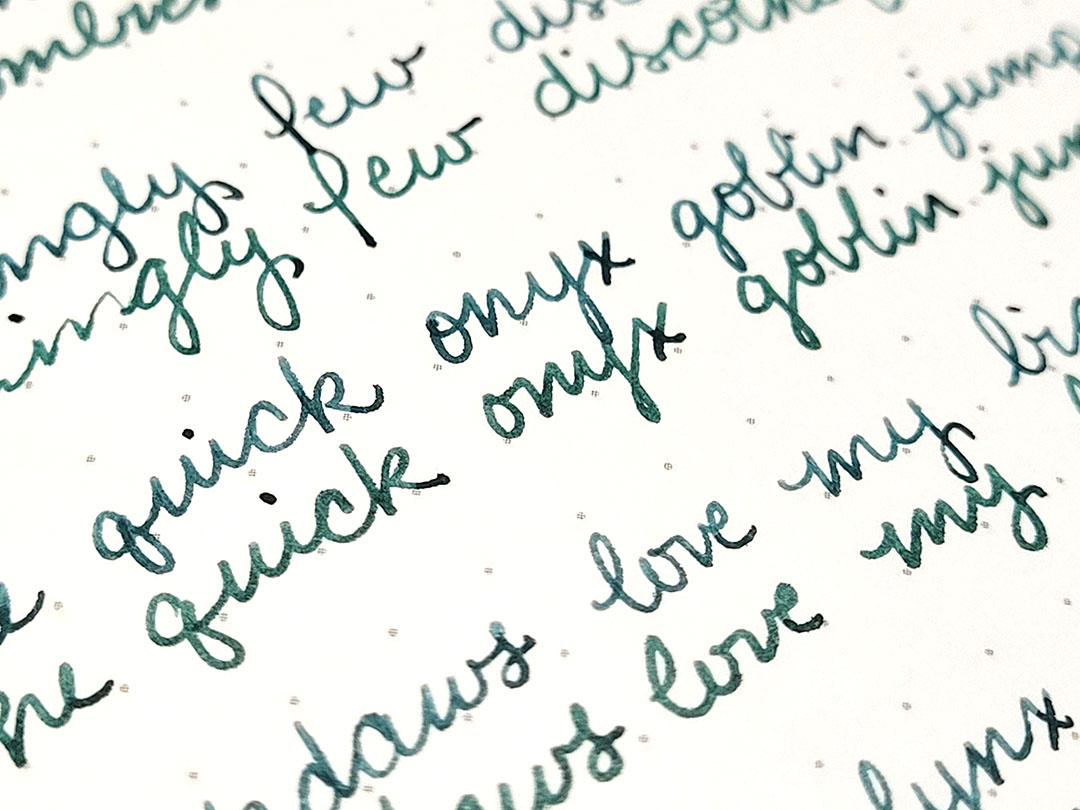 ngly few disc
ingly few discoth
quick onyx goblin jump
he quick onyx goblin jum
daws love my bi
aws love my
lynx